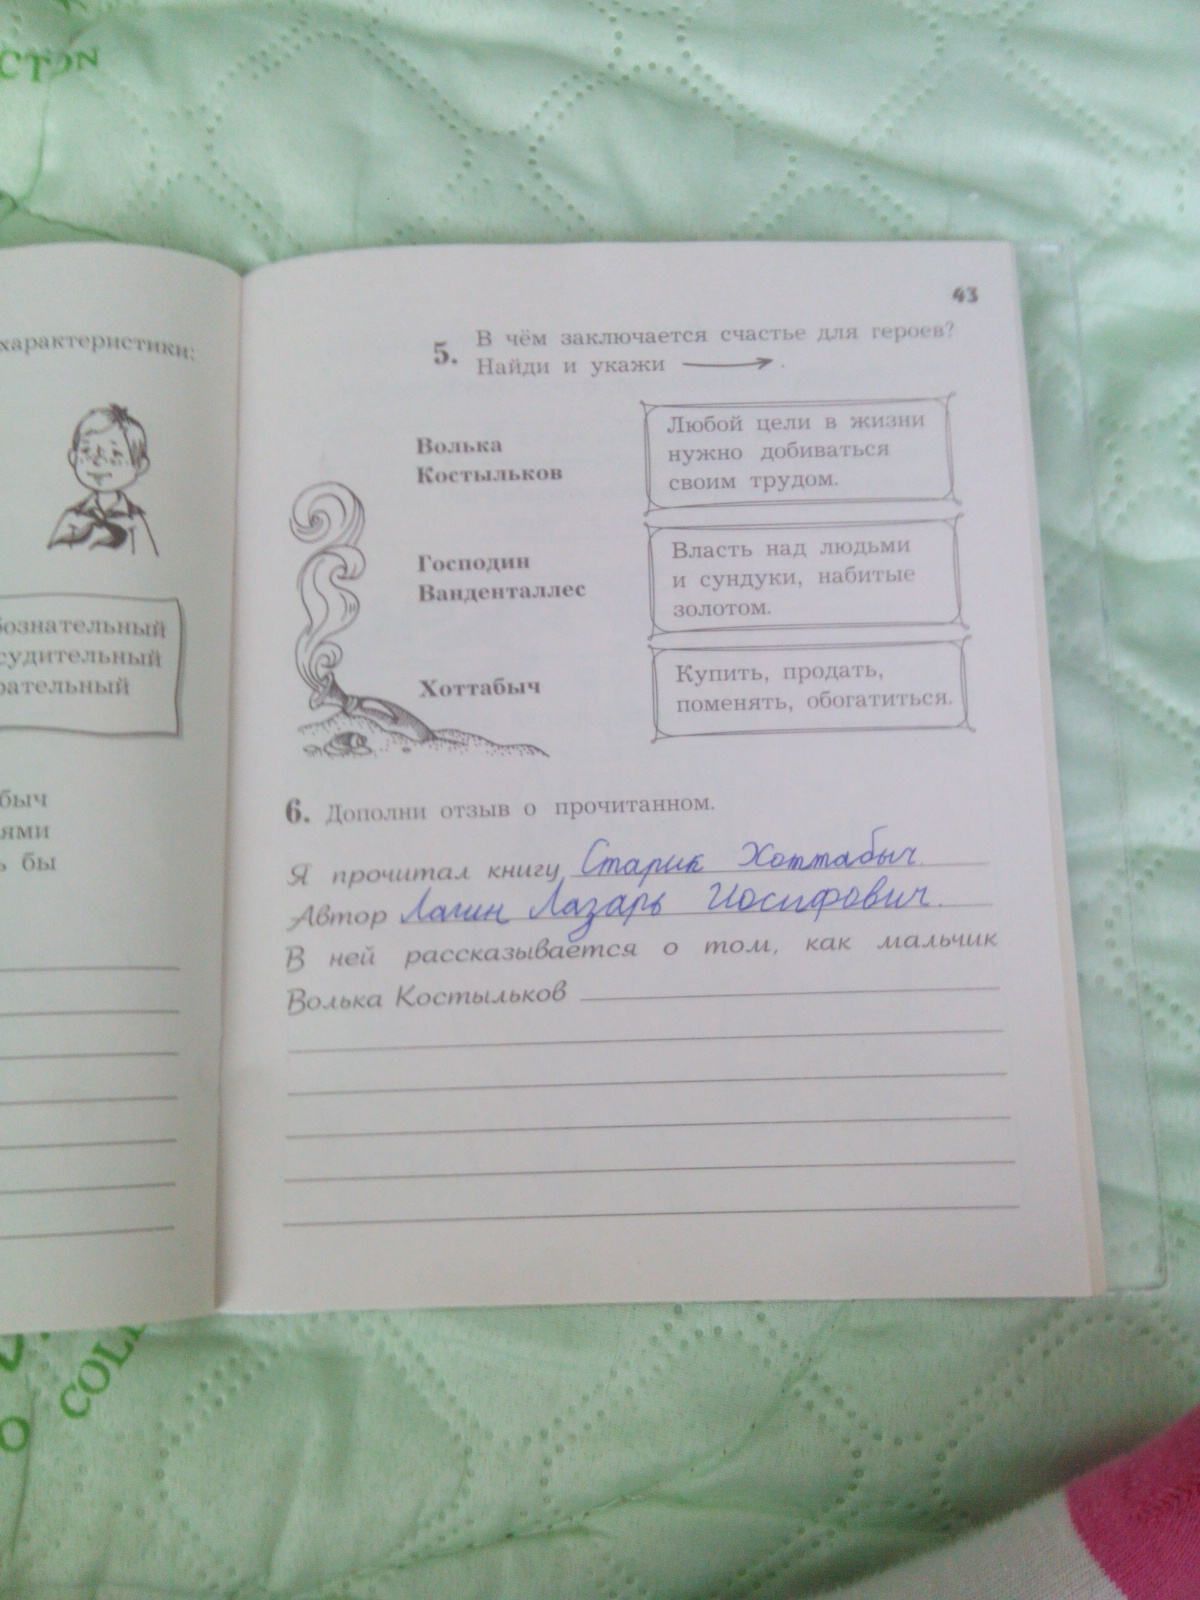 CTON
характеристики:
бознательный
судительный
рательный
быч
ями
ь бы
43
5. В чём заключается счастье для героев?
Найди и укажи
Волька
Костыльков
Любой цели в жизни
нужно добиваться
своим трудом.
Господин
Ванденталлес
Власть над людьми
и сундуки, набитые
золотом.
Хоттабыч
Купить, продать,
поменять, обогатиться.
6. Дополни отзыв о прочитанном.
Я прочитал книгу Старик Хоттабыч.
Автор Лагин Лазарь Иосифович.
В ней рассказывается о том, как мальчик
Волька Костыльков
O COL